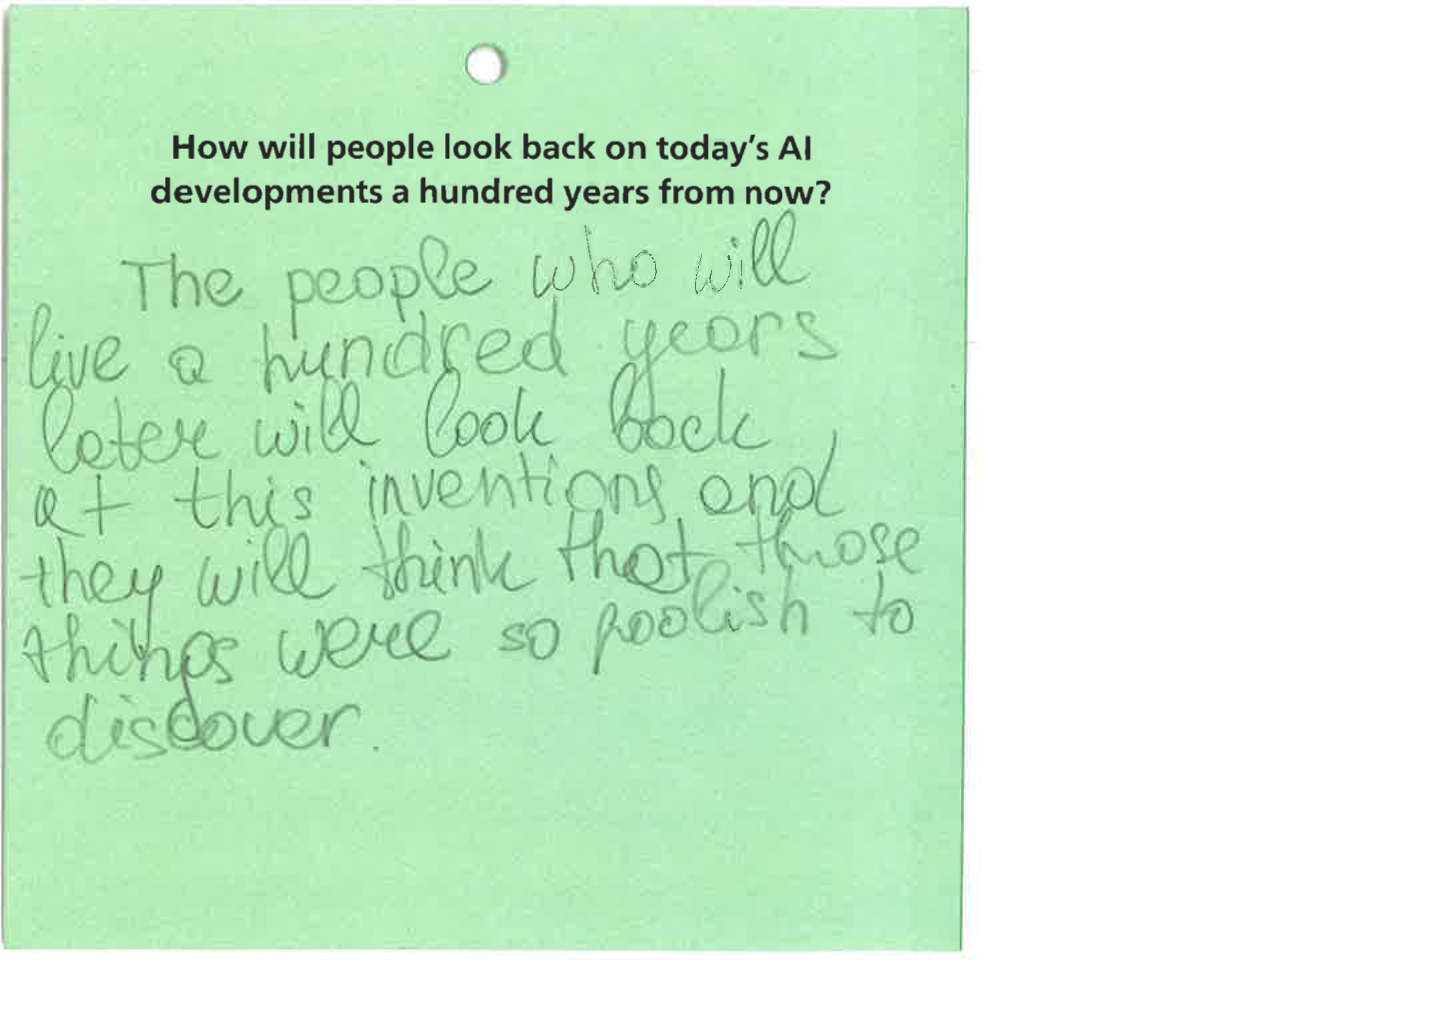 How will people look back on today's AI
developments a hundred years from now?
The people who will
live a hundred years
later will look back
at this inventions and
they will think that those
things were so foolish to
discover.